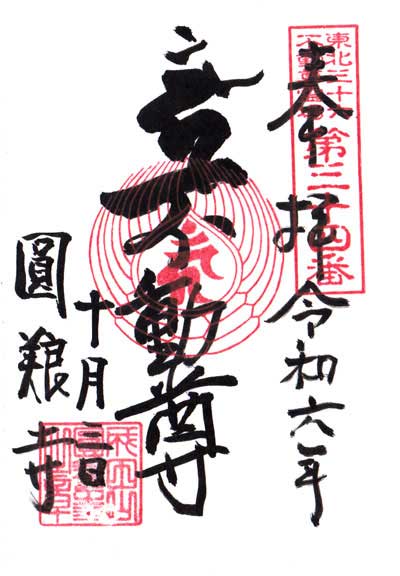 奉拝 令和六年
東北三十六
不動尊霊場
第三十四番
大不動尊
十月三日
圓養寺